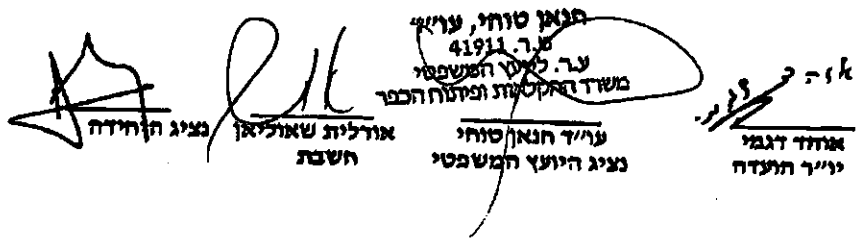 חנאן טוחי, עו"ד
מ.ר. 41911
ע.ר. ליועץ המשפטי
משרד החקלאות ופיתוח הכפר
אוהד דגמי
יו"ר הועדה
עו"ד חנאן טוחי
נציג היועץ המשפטי
אורלית שאוליאן
חשבת
נציג היחידה